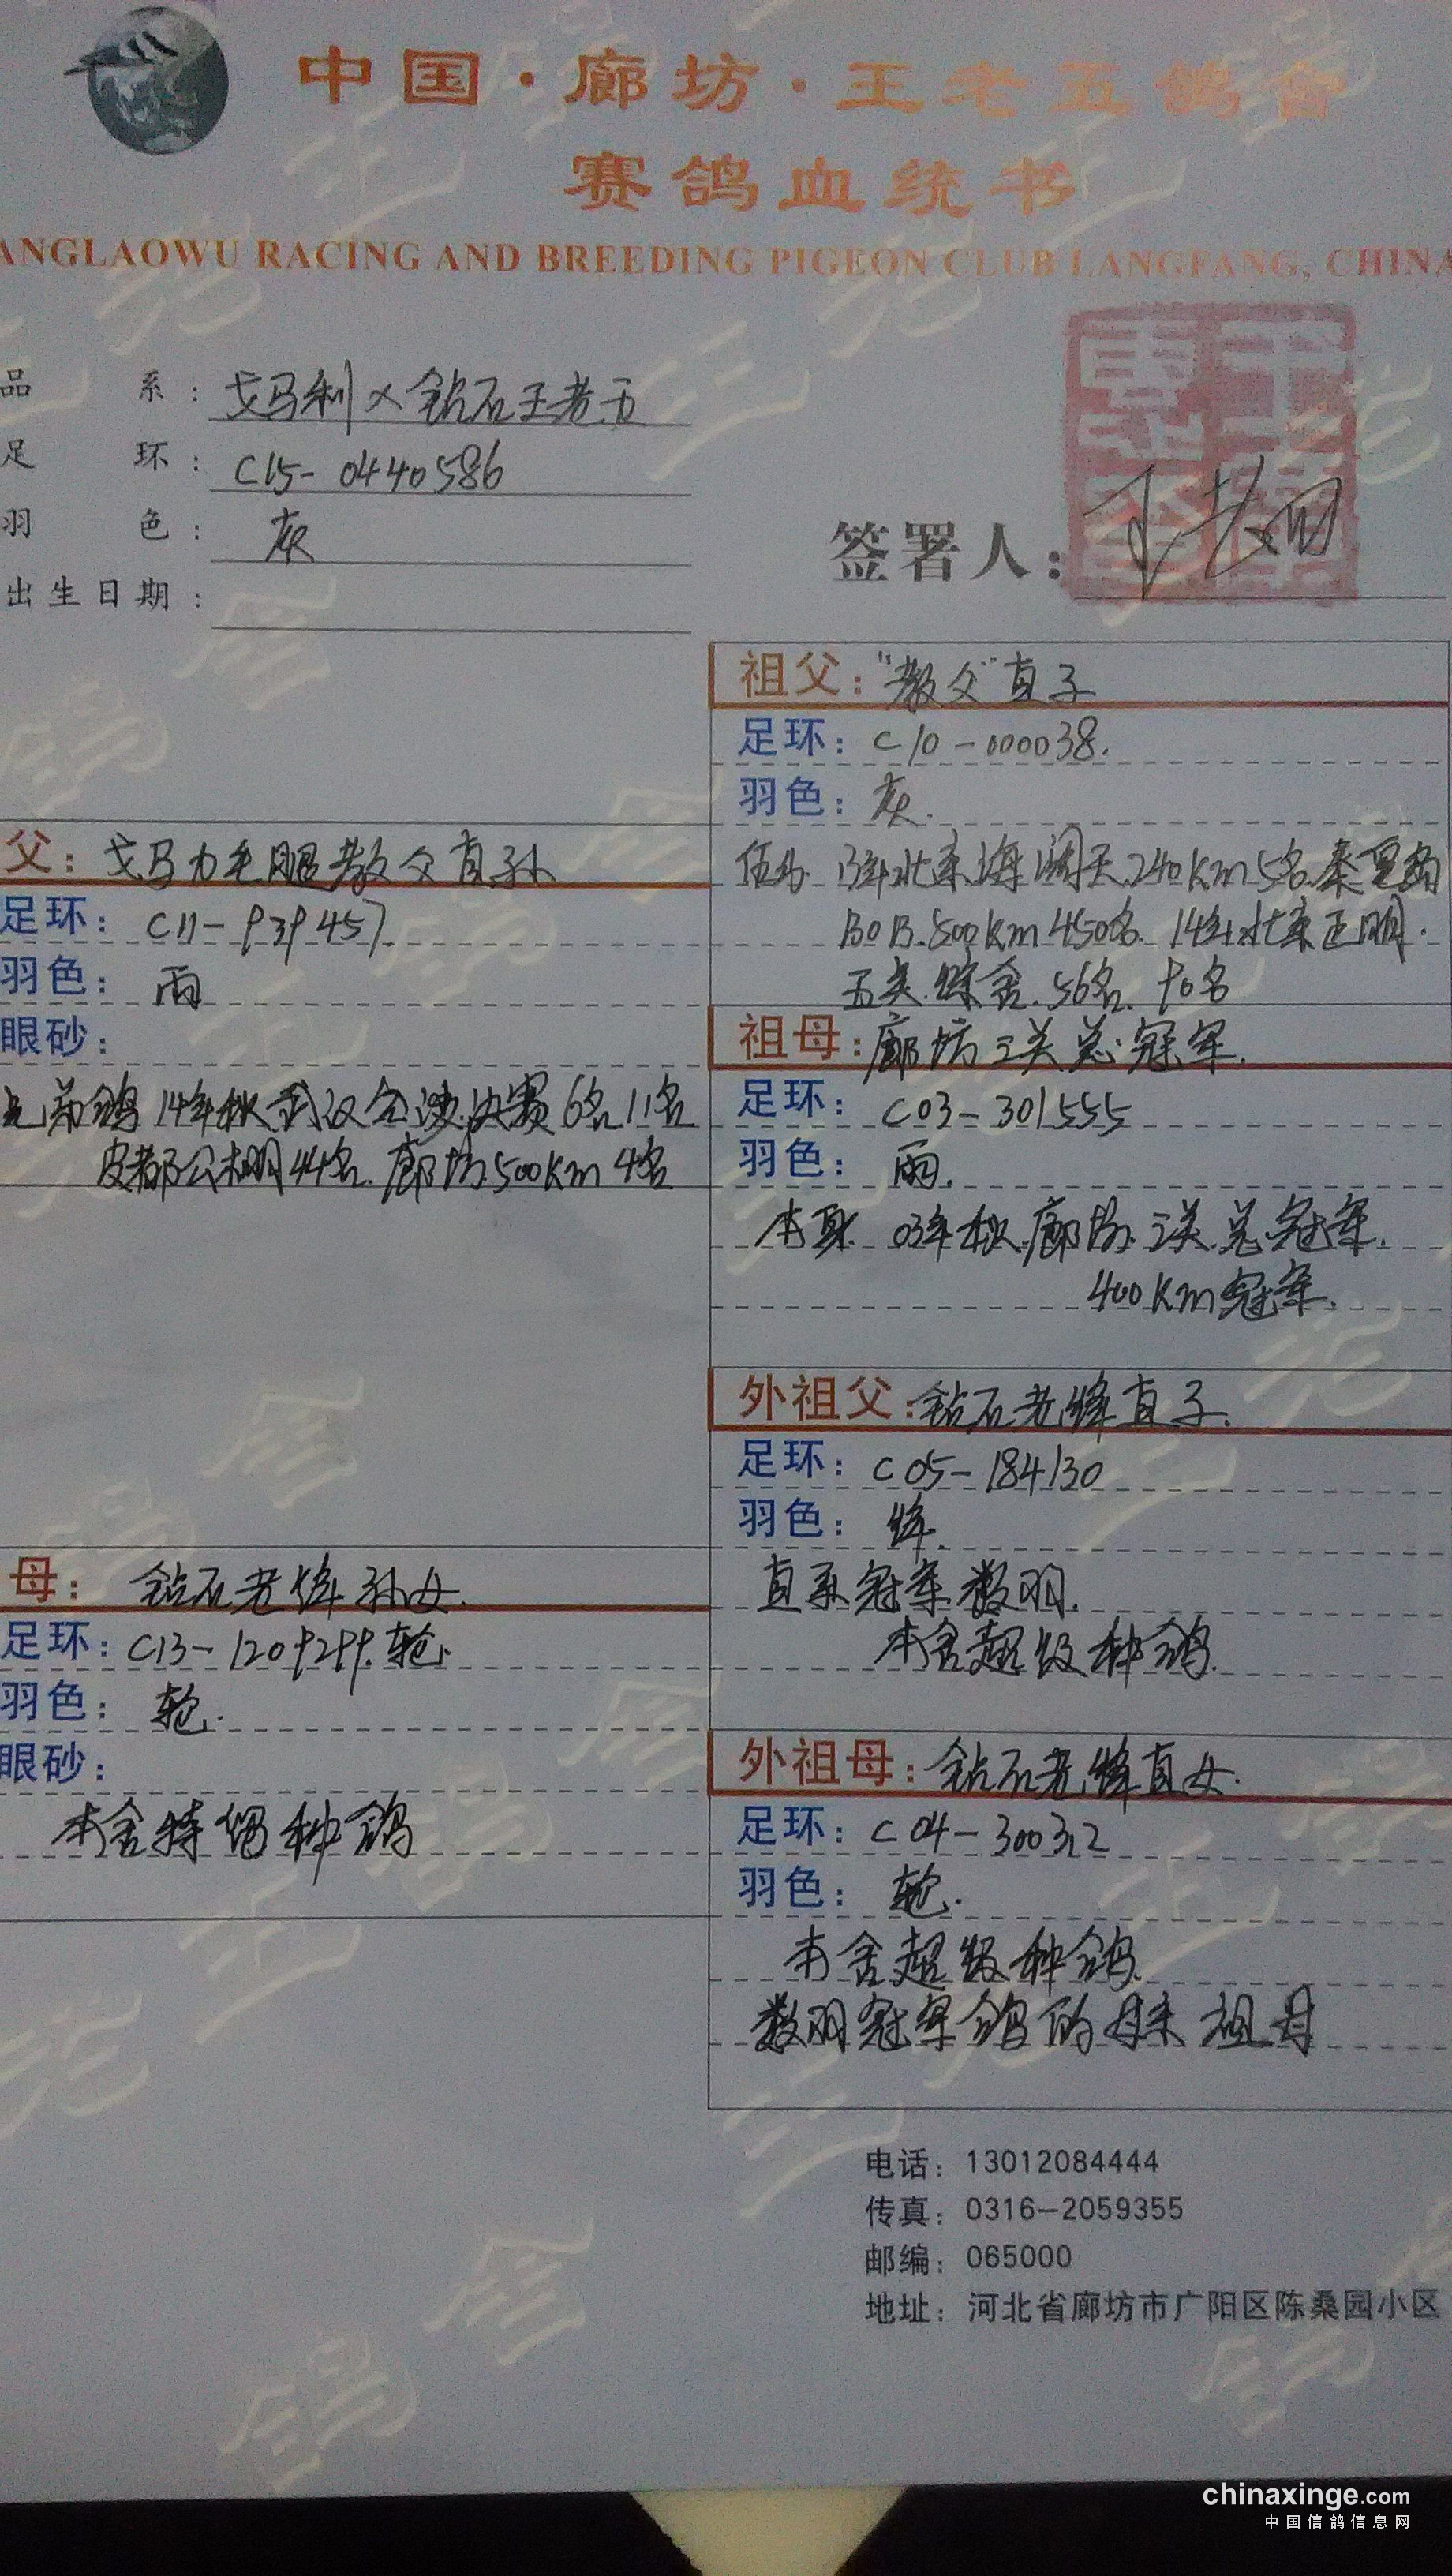 中国·廊坊·王老五鸽舍
赛鸽血统书
ANGLAOWU RACING AND BREEDING PIGEON CLUB LANGFANG, CHINA
品 系: 戈马利×钻石王老五
足 环: C15-0440586
羽 色: 灰
出生日期:
签署人:
祖父: "教父"直子
足环: C10-000038.
羽色: 灰.
13年北京海阔天240km5名.秦皇岛
BOB.500km450名. 14年北京正明.
五关综合.56名. 90名
父: 戈马力毛腿教父直孙
足环: C11-939457
羽色: 雨
眼砂:
兄弟鸽14年秋武汉 决赛6名11名
公棚44名.廊坊500km 4名
祖母: 廊坊三关总冠军.
足环: C03-301555
羽色: 雨.
本身. 03年秋.廊坊.三关.总冠军.
400km冠军.
外祖父: 钻石老绛直子.
足环: C05-184130
羽色: 绛.
直系冠军数羽.
本舍超级种鸽.
母: 钻石老绛孙女.
足环: C13-1209299.轮.
羽色: 轮.
眼砂:
本舍特留种鸽
外祖母: 钻石老绛直女.
足环: C04-300312
羽色: 轮.
本舍超级种鸽.
数羽冠军鸽的母亲祖母
电话: 13012084444
传真: 0316-2059355
邮编: 065000
地址: 河北省廊坊市广阳区陈桑园小区
chinaxinge.com
中国信鸽信息网